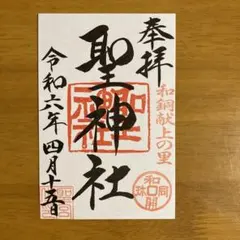 奉拝
和銅献上の里
和同開珎
聖神社
令和六年四月十五日